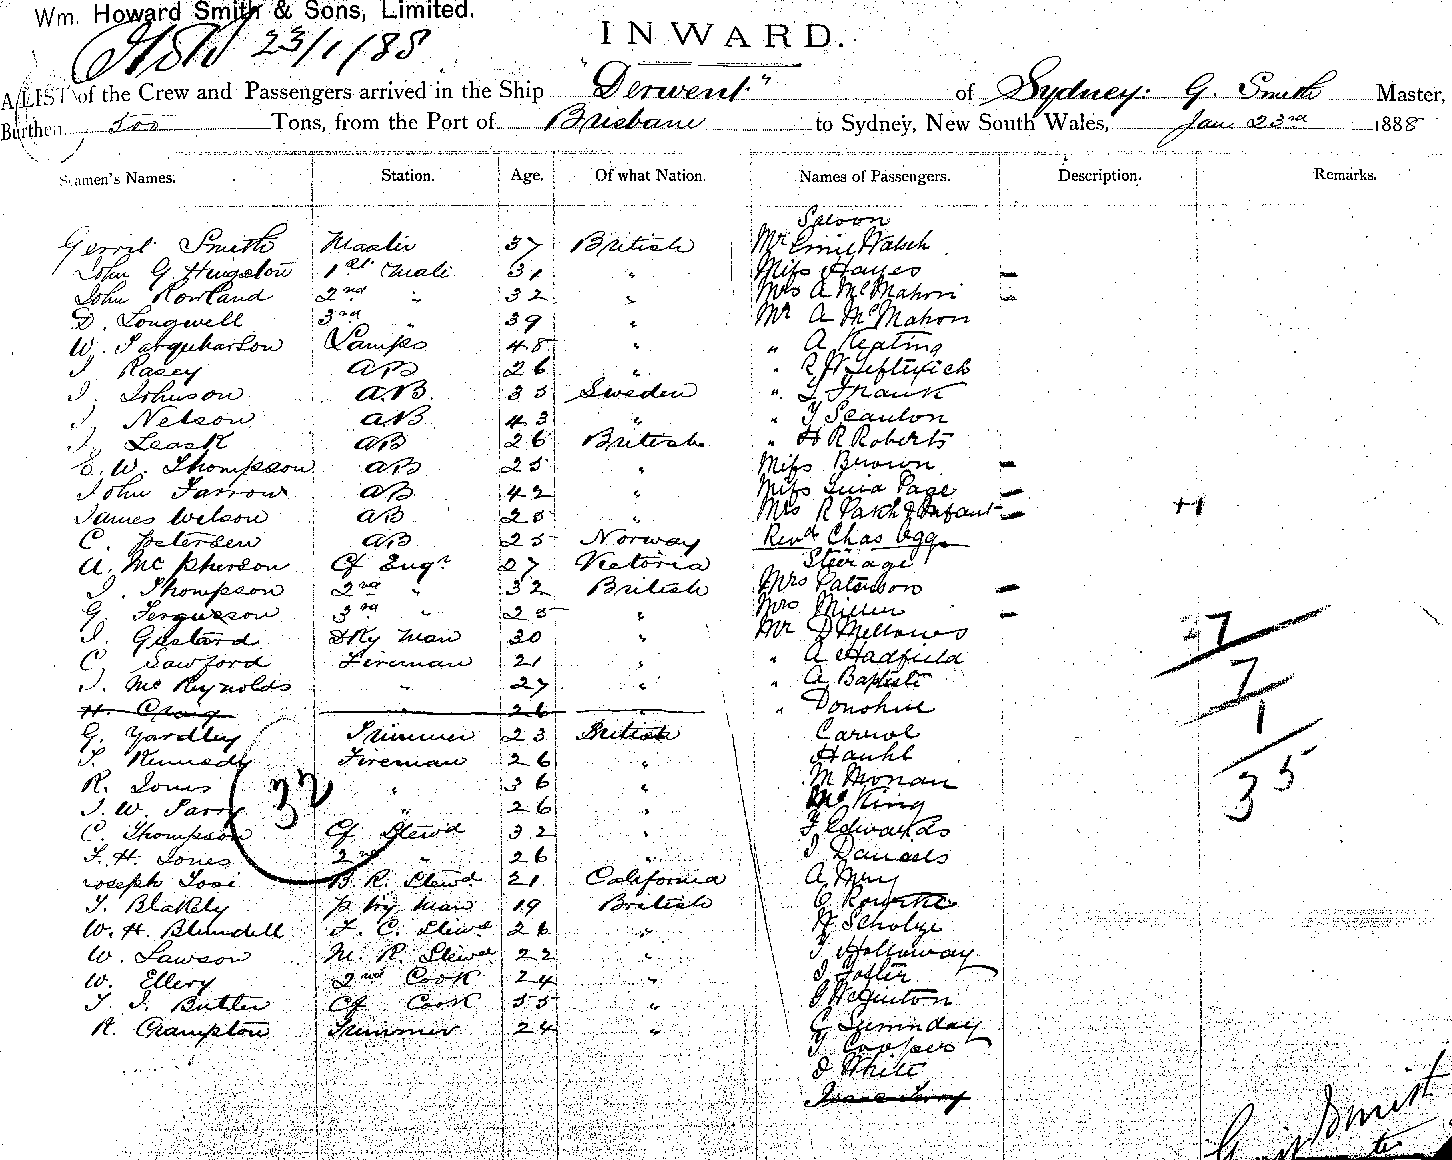 Wm. Howard Smith & Sons, Limited.
23/1/88
INWARD.
A LIST of the Crew and Passengers arrived in the Ship "Derwent" of Sydney. G. Smith Master,
Burthen 500 Tons, from the Port of Brisbane to Sydney, New South Wales, Jan 23rd 1888
Seamen's Names. Station. Age. Of what Nation. Names of Passengers. Description. Remarks.
Saloon
Gerrit Smith Master 37 British Mr Emil Walsh
John G Hingston 1st Mate 31 " Miss Hayes -
John Rowland 2nd " 32 " Mrs A McMahon -
D. Longwell 3rd " 39 " Mr A McMahon
W. Farquharson Lamps 48 " " A Keating
J Rasey AB 26 " "
J. Johnson AB 35 Sweden " Frank
J. Nelson AB 43 " " Scanlon
J. Leask AB 26 British " H R Roberts
E. W. Thompson AB 25 " Miss Brown -
John Farrow AB 42 " Miss Page -
James Wilson AB 25 " Mrs R & Infant -
C. Petersen AB 25 Norway Revd Chas Ogg
A. McPherson Cf Engr 27 Victoria Steerage
J. Thompson 2nd " 32 British Mrs Paterson -
G Fergusson 3rd " 25 " Mrs Miller -
J. Gostard Dky Man 30 " Mr D
C. Sawford Fireman 21 " " A Hadfield
J. McReynolds " 27 " " A Baptiste
H. Craig " 26 " " Donohue
G. Yardley Trimmer 23 British Carrol
T. Kennedy Fireman 26 "
R. Jones " 36 " M
J. W. Parry " 26 " King
C. Thompson Cf Stewd 32 " F Edwards
F. H. Jones 2nd " 26 " J Daniels
Joseph Tosi B. R. Stewd 21 California A
T. Blakely Pty Man 19 British
W. H. Blundell F. C. Stewd 26 " Scholze
W. Lawson M. R. Stewd 22 " T Holloway
W. Ellery 2nd Cook 24 " J Foster
T. J. Butler Cf Cook 55 "
R. Crampton Trimmer 24 "
Cooper
D White
32
27
7
1
35
G. Smith